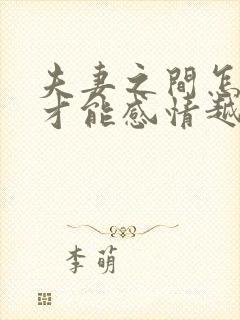 夫妻之間怎
才能感情越
李萌